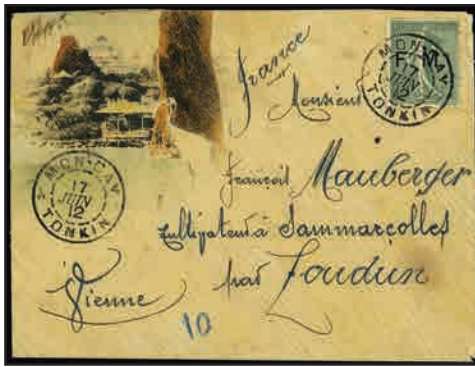 France
F. M.
MONCAY
17
JUIN
12
TONKIN
Monsieur
MONCAY
17
JUIN
12
TONKIN
François Mauberger
Cultivateur à Sammarcolles
par Loudun
Vienne
10